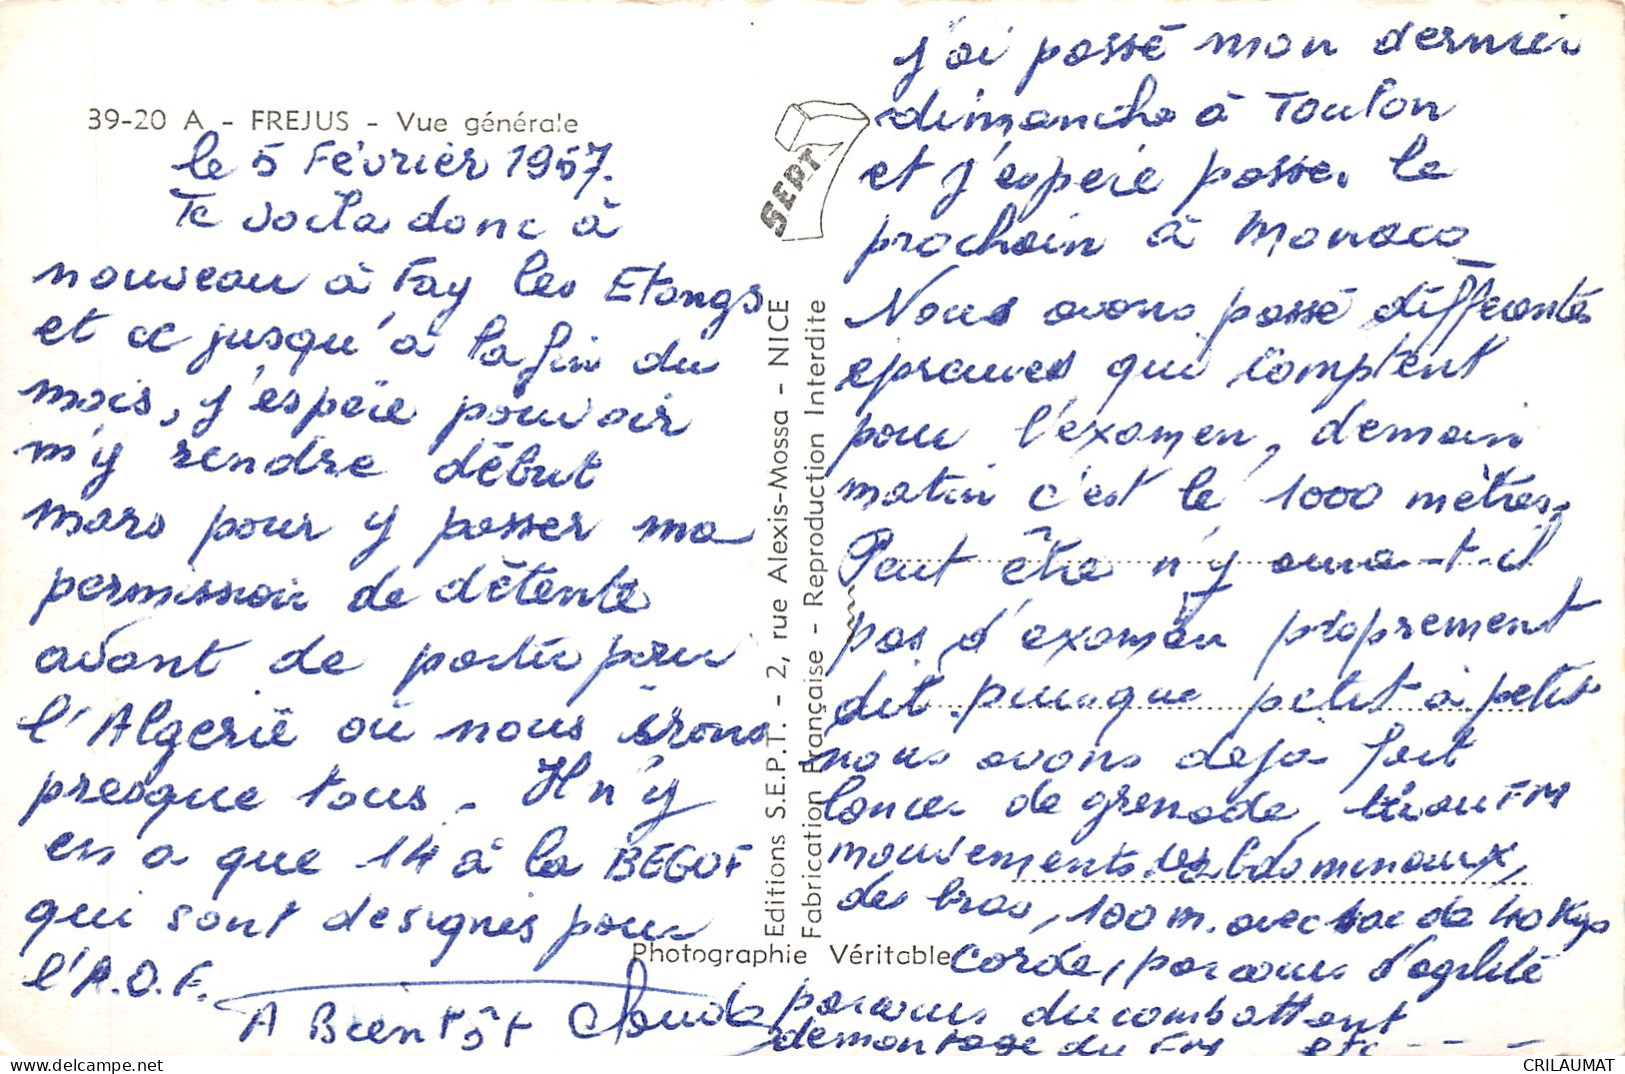 39-20 A - FREJUS - Vue générale
le 5 Février 1957.
Te voila donc à
nouveau à Fay les Etangs
et ce jusqu'à la fin du
mois, j'espère pouvoir
m'y rendre début
mars pour y passer ma
permission de détente
avant de partir pour
l'Algerie où nous irons
presque tous. Il n'y
en a que 14 à la BEGOF
qui sont designés pour
l'A.O.F.
A Bientôt Claude
SEPT
Editions S.E.P.T. - 2, rue Alexis-Mossa - NICE
Fabrication Française - Reproduction Interdite
Photographie Véritable
j'ai passé mon dernier
dimanche à Toulon
et j'espère passer le
prochain à Monaco
Nous avons passé différentes
epreuves qui comptent
pour l'examen, demain
matin c'est le 1000 mètres.
Peut être n'y aura-t-il
pas d'examen proprement
dit puisque petit à petit
nous avons deja fait
lancer de grenade, tir au FM
mouvements abdominaux,
des bras, 100 m. avec sac de 40 Kgs
corde, parcours d'agilité
parcours du combattant
demontage du FM etc - - - -
CRILAUMAT